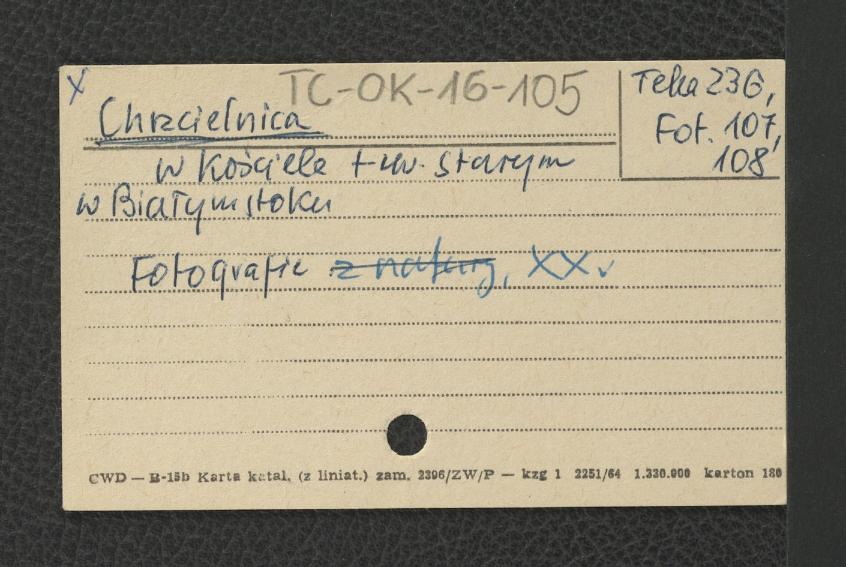 X
TC-OK-16-105
Teka 236,
Fot. 107,
108
Chrzcielnica
w Kościele t-zw. starym
w Białymstoku
Fotografie z natury, XX.
CWD — B-15b Karta katal. (z liniat.) zam. 2396/ZW/P — kzg 1 2251/64 1.330.000 karton 180